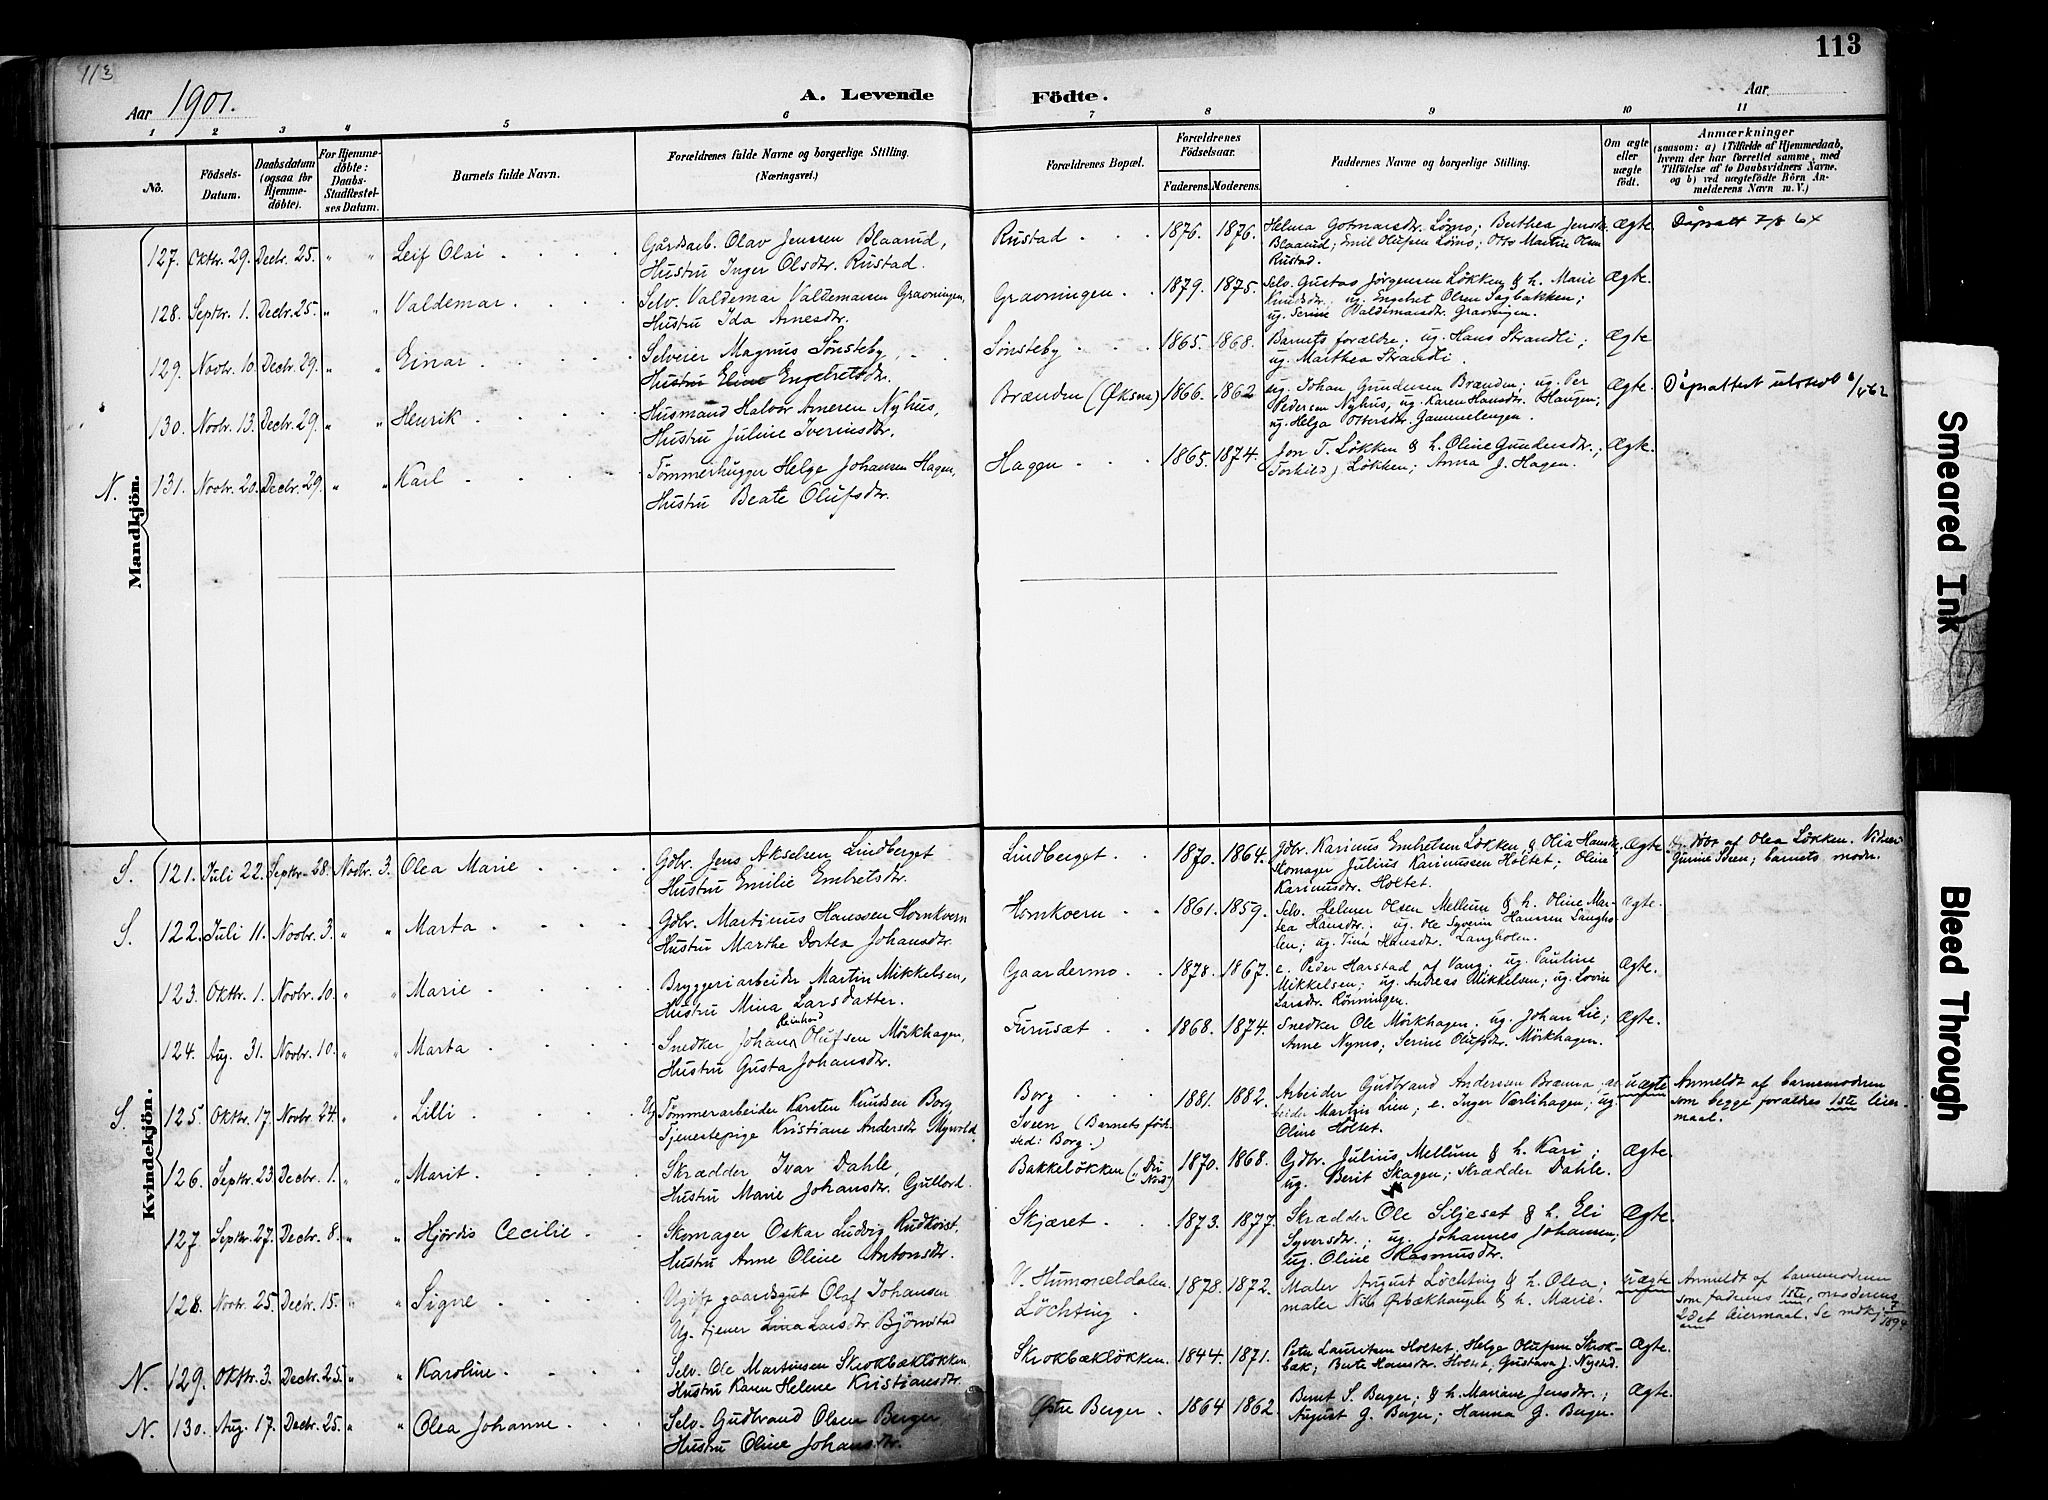 113
113
Aar 1901.
A. Levende Födte.
Aar
1 2 3 4 5 6 7 8 9 10 11
No.
Födsels-Datum.
Daabsdatum (ogsaa for Hjemme-döbte).
For Hjemme-döbte: Daabs-Stadfæstel-ses Datum.
Barnets fulde Navn.
Forældrenes fulde Navne og borgerlige Stilling. (Næringsvei.)
Forældrenes Bopæl.
Forældrenes Födselsaar.
Faderens. Moderens.
Faddernes Navne og borgerlige Stilling.
Om ægte eller uægte födt.
Anmærkninger
(saasom: a) i Tilfælde af Hjemmedaab, hvem der har forrettet samme, med Tilföielse af to Daabsvidners Navne, og b) ved uægtefödte Börn An-melderens Navn m. V.)
Mandkjön.
127. Oktbr. 29. Decbr. 25. " " Leif Olai
Gårdarb. Olav Jenssen Blaarud,
Hustru Inger Olsdtr. Rustad.
Rustad 1876. 1876.
Helma Gotmarsdtr. Lömo; Berthea Jensdtr.
Blaarud; Emil Olufsen Lömo; Otto Martin Olsen
Rustad.
Ægte. Dåpsatt 64
128. Septbr. 1. Decbr. 25. " " Valdemar
Selv. Valdemar Valdemarsen Gravningen,
Hustru Ida Arnesdtr.
Gravningen 1879. 1875.
Selv. Gustav Jörgensen Løkken & h. Marie
Knudsdtr.; ug. Engebret Olsen Sagbakken;
ug. Serine Valdemarsdtr. Gravningen.
Ægte.
129. Novbr. 10. Decbr. 29. " " Einar
Selveier Magnus Sønsteby,
Hustru Eline Engebretsdtr.
Sønsteby 1865. 1868.
Barnets forældre; ug. Hans Strandli;
ug. Marthea Strandli.
Ægte
130. Novbr. 13. Decbr. 29. " " Henrik
Husmand Halvor Arnesen Nyhus,
Hustru Juline Iverinsdtr.
Brænden (Øksna) 1866. 1862
ug. Johan Gundersen Brænden; ug. Per
Pedersen Nyhus, ug. Karen Hansdtr. Haugen;
ug. Helga Ottersdtr. Gammelengen.
Ægte. Dåpsattest utstedt 62
N. 131. Novbr. 20. Decbr. 29. " " Karl
Tømmerhugger Helge Johansen Hagen,
Hustru Beate Olufsdtr.
Hagen 1865. 1874.
Jon T. Løkken & h. Oline Gundersdtr.;
Torkild J. Løkken; Anna J. Hagen.
Ægte.
Kvindekjön.
S. 121. Juli 22. Septbr. 28. Novbr. 3. Olea Marie
Gdbr. Jens Akselsen Lindberget
Hustru Emilie Embretsdtr.
Lindberget 1870. 1864.
Gdbr. Karinus Embretsen Løkken & Olia Hansdtr.;
Skomager Julius Karinussen Holtet; Oline
Karinusdtr. Holtet.
Ægte af Olea Løkken.
barnets moder.
S. 122. Juli 11. Novbr. 3. " " Marta
Gdbr. Martinus Hanssen Hornkvern
Hustru Marthe Dortea Johansdtr.
Hornkvern 1861. 1859.
Selv. Helmer Olsen Mellum & h. Oline Mar-
tea Hansdtr.; ug. Ole Syverin Hanssen Langho-
len; ug. Tina Hansdtr. Langholen.
Ægte.
123. Oktbr. 1. Novbr. 10. " " Marie
Bryggeriarbeider Martin Mikkelsen,
Hustru Mina Larsdatter.
Gaardermo 1878. 1867.
e. Peder Harstad af Vang; ug. Pauline
Mikkelsen; ug. Andreas Mikkelsen; ug. Lovise
Larsdtr. Rönningen.
Ægte.
124. Aug. 31. Novbr. 10. " " Marta
Reinhard
Snedker Johan Olufsen Mörkhagen,
Hustru Gusta Johansdtr.
Furuset 1868. 1874.
Snedker Ole Mörkhagen; ug. Johan Lie;
Anne Nymo; Serine Olufsdtr. Mörkhagen.
Ægte.
S. 125. Oktbr. 17. Novbr. 24. " " Lilli
Ug Tømmerarbeider Karsten Knudsen Borg
Tjenestepige Kristiane Andersdtr.
Borg
Sveen (Barnets föde-
sted: Borg.)
1881. 1882.
Arbeider Gudbrand Anderssen Brænna, ar-
beider Martin Lien; e. Inger Værlihagen; ug.
Oline Holtet.
uægte Anmeldt af barnemoderen
som begge forældres 1ste leier-
maal.
126. Septbr. 23. Decbr. 1. " " Marit
Skrædder Ivar Dahle,
Hustru Marie Johansdtr. Gullord.
Bakkeløkken 1870. 1868.
Gdbr. Julius Mellum & h. Kari;
ug. Berit Skagen; skrædder Dahle.
Ægte.
127 Septbr. 27. Decbr. 8. " " Hjördis Cecilie
Skomager Oskar Ludvig Rudkvist,
Hustru Anne Oline Antonsdtr.
Skjæret 1873. 1877.
Skrædder Ole Siljeset & h. Eli
Syversdtr.; ug. Johannes Johansen,
ug. Oline Rasmusdtr.
Ægte.
128. Novbr. 25. Decbr. 15. " " Signe
Ugift gaardsgut Olaf Johansen
Ug. tjener Lina Larsdtr. Björnstad
V. Hummeldalen
Löchting
1878. 1872.
Maler August Löchting & h. Olea;
maler Nils Ørbækhaugen & h. Marie.
uægte Anmeldt af barnemoderen
som faderens 1ste, moderens
2det leiermaal. Se mdkj. 7/1894
N. 129. Oktbr. 3. Decbr. 25. " " Karoline
Selv. Ole Martinsen Skrokbækløkken
Hustru Karen Helene Kristiansdtr.
Skrokbækløkken. 1844. 1871.
Peter Lauritsen Holtet, Helge Olufsen Skrok-
bæk; Berte Hansdtr. Holtet, Gustava J. Nystad.
Ægte.
N. 130. Aug. 17. Decbr. 25. " " Olea Johanne
Selv. Gudbrand Olsen Berger
Hustru Oline Johansdtr.
Østre Berger 1864 1862.
Bernt S. Berger; & h. Mariane Jensdtr.;
August G. Berger; Hanna G. Berger.
Ægte.
Smeared Ink
Bleed Through